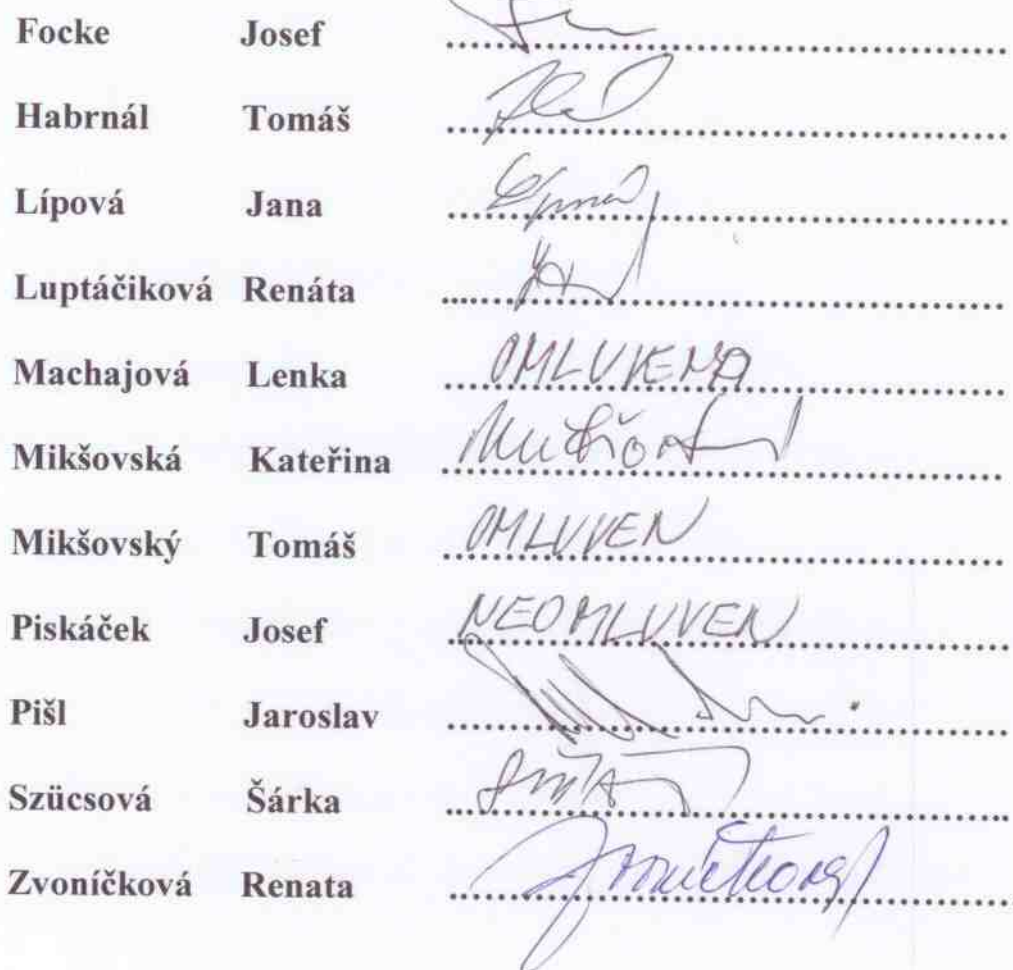 Focke Josef
Habrnál Tomáš
Lípová Jana
Luptáčiková Renáta
Machajová Lenka OMLUVENA
Mikšovská Kateřina
Mikšovský Tomáš OMLUVEN
Piskáček Josef NEOMLUVEN
Pišl Jaroslav
Szücsová Šárka
Zvoníčková Renata